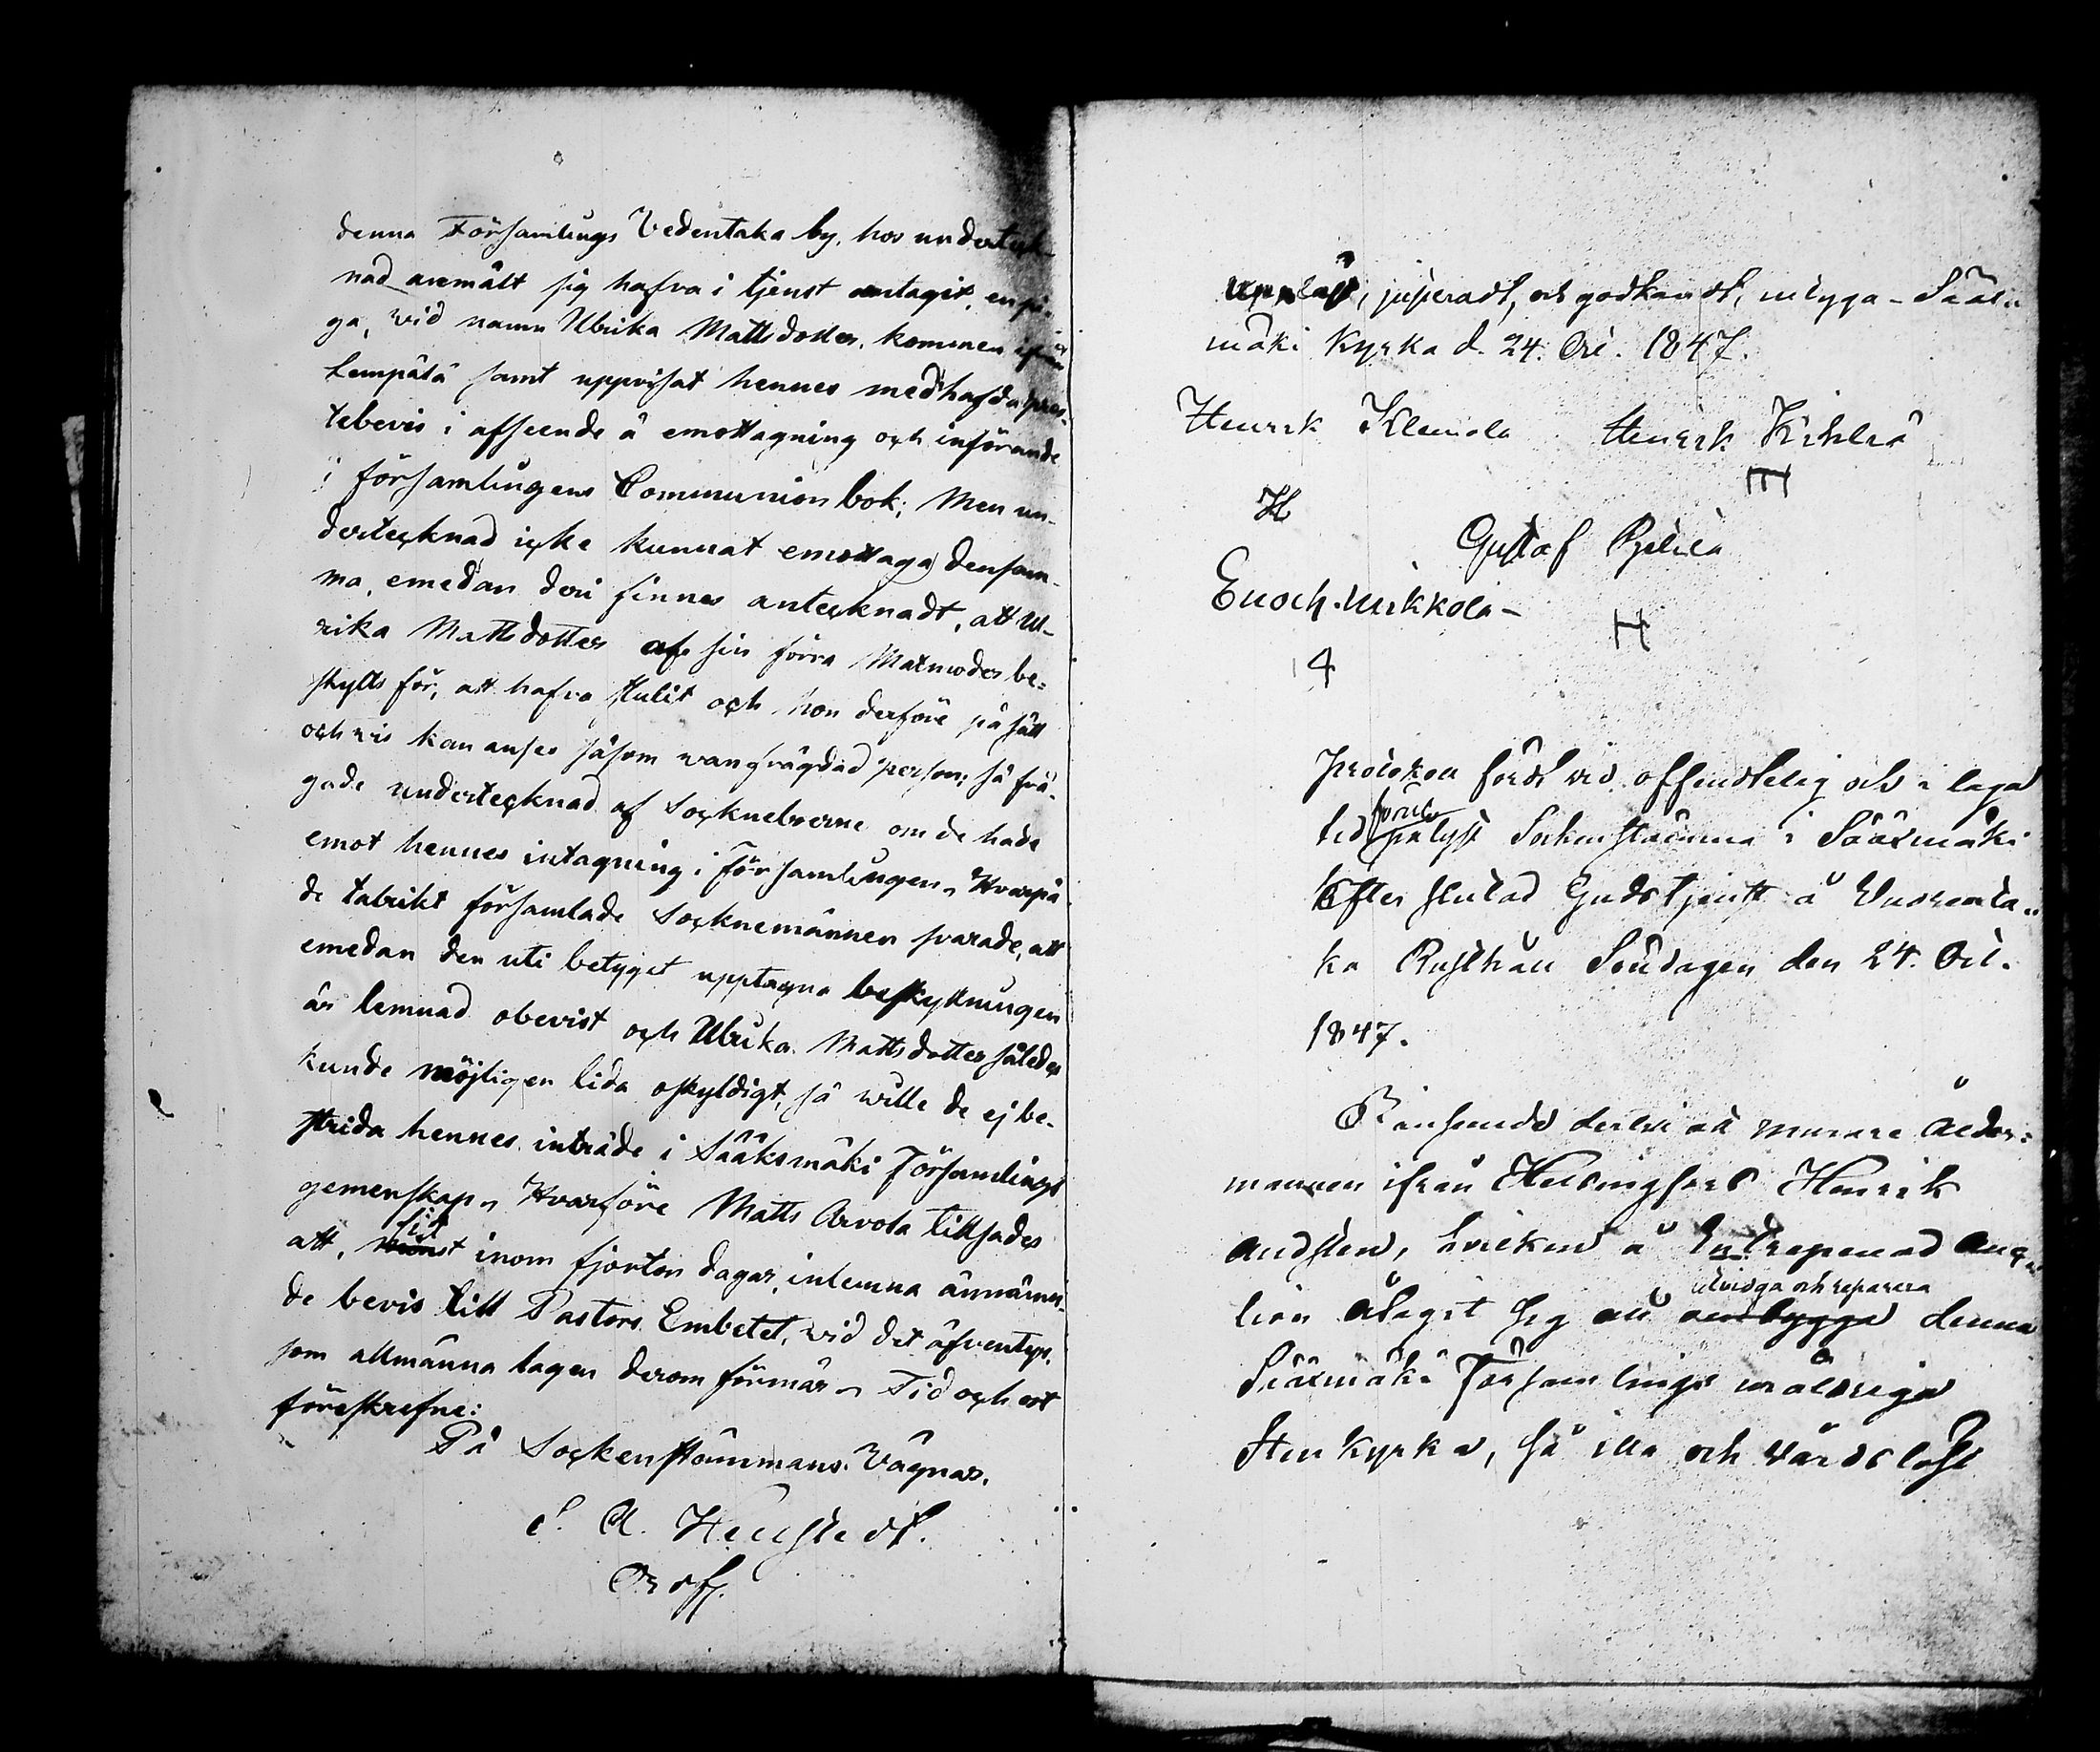 denna Församlings Vedentaka by, hos underteck-
nad anmält sig hafva i tjenst antagit, en pi-
ga, vid namn Ulrika Mattsdotter, kommen ifrån
Lempälä samt uppvisat hennes medhafda pres-
tebevis i afseende å emottagning och införande
i församlingens Communion bok; Men un-
dertecknad icke kunnat emottaga densam-
ma, emedan deri finnes antecknadt, att Ul-
rika Mattsdotter af sin förra Matmoder be-
skylts för, att hafva stulit och hon derföre på sätt
och vis kan anses såsom vanfrägdad person; så frå-
gade undertecknad af Sockneboerne om de hade
emot hennes intagning i Församlingen, Hvarpå
de talrikt församlade Socknemännen svarade, att
emedan den uti betyget upptagna beskyllningen
är lemnad obevist och Ulrika Mattsdotter således
kunde möjligen lida oskyldigt, så wille de ej be-
strida hennes inträde i Sääksmäki Församlings
gemenskap, Hvarföre Matts Arvola tillsades
att, sist inom fjorton dagar, inlemna ännämn-
de bevis till Pastors Embetet, vid det äfventyr,
som allmänna lagen derom förmår, Tid och ort
föreskrefne:
På Sockenstämmans Vägnar.
Ordf.
Uppläst, justeradt, och godkändt, intyga - Sääx-
mäki Kyrka d. 24. Oct. 1847.
Henrik Klemola Henrik
Gustaf
Enoch Mikkola -
Protokoll fördt vid offentelig och i laga
tid förut pålyst Sockenstämma i Sääxmäki
Efter slutad Gudstjenst å Vuorenta-
ka Rusthåll Söndagen den 24. Oct.
1847.
I anseende dertill att murare Ålder-
mannen ifrån Helsingfors Henrik
Andsten, hvilken å Entreprenad Auc-
tion åtagit sig att utvidga och reparera denna
Sääxmäki Församlings uråldriga
Sten kyrka, så illa och vårdslöst